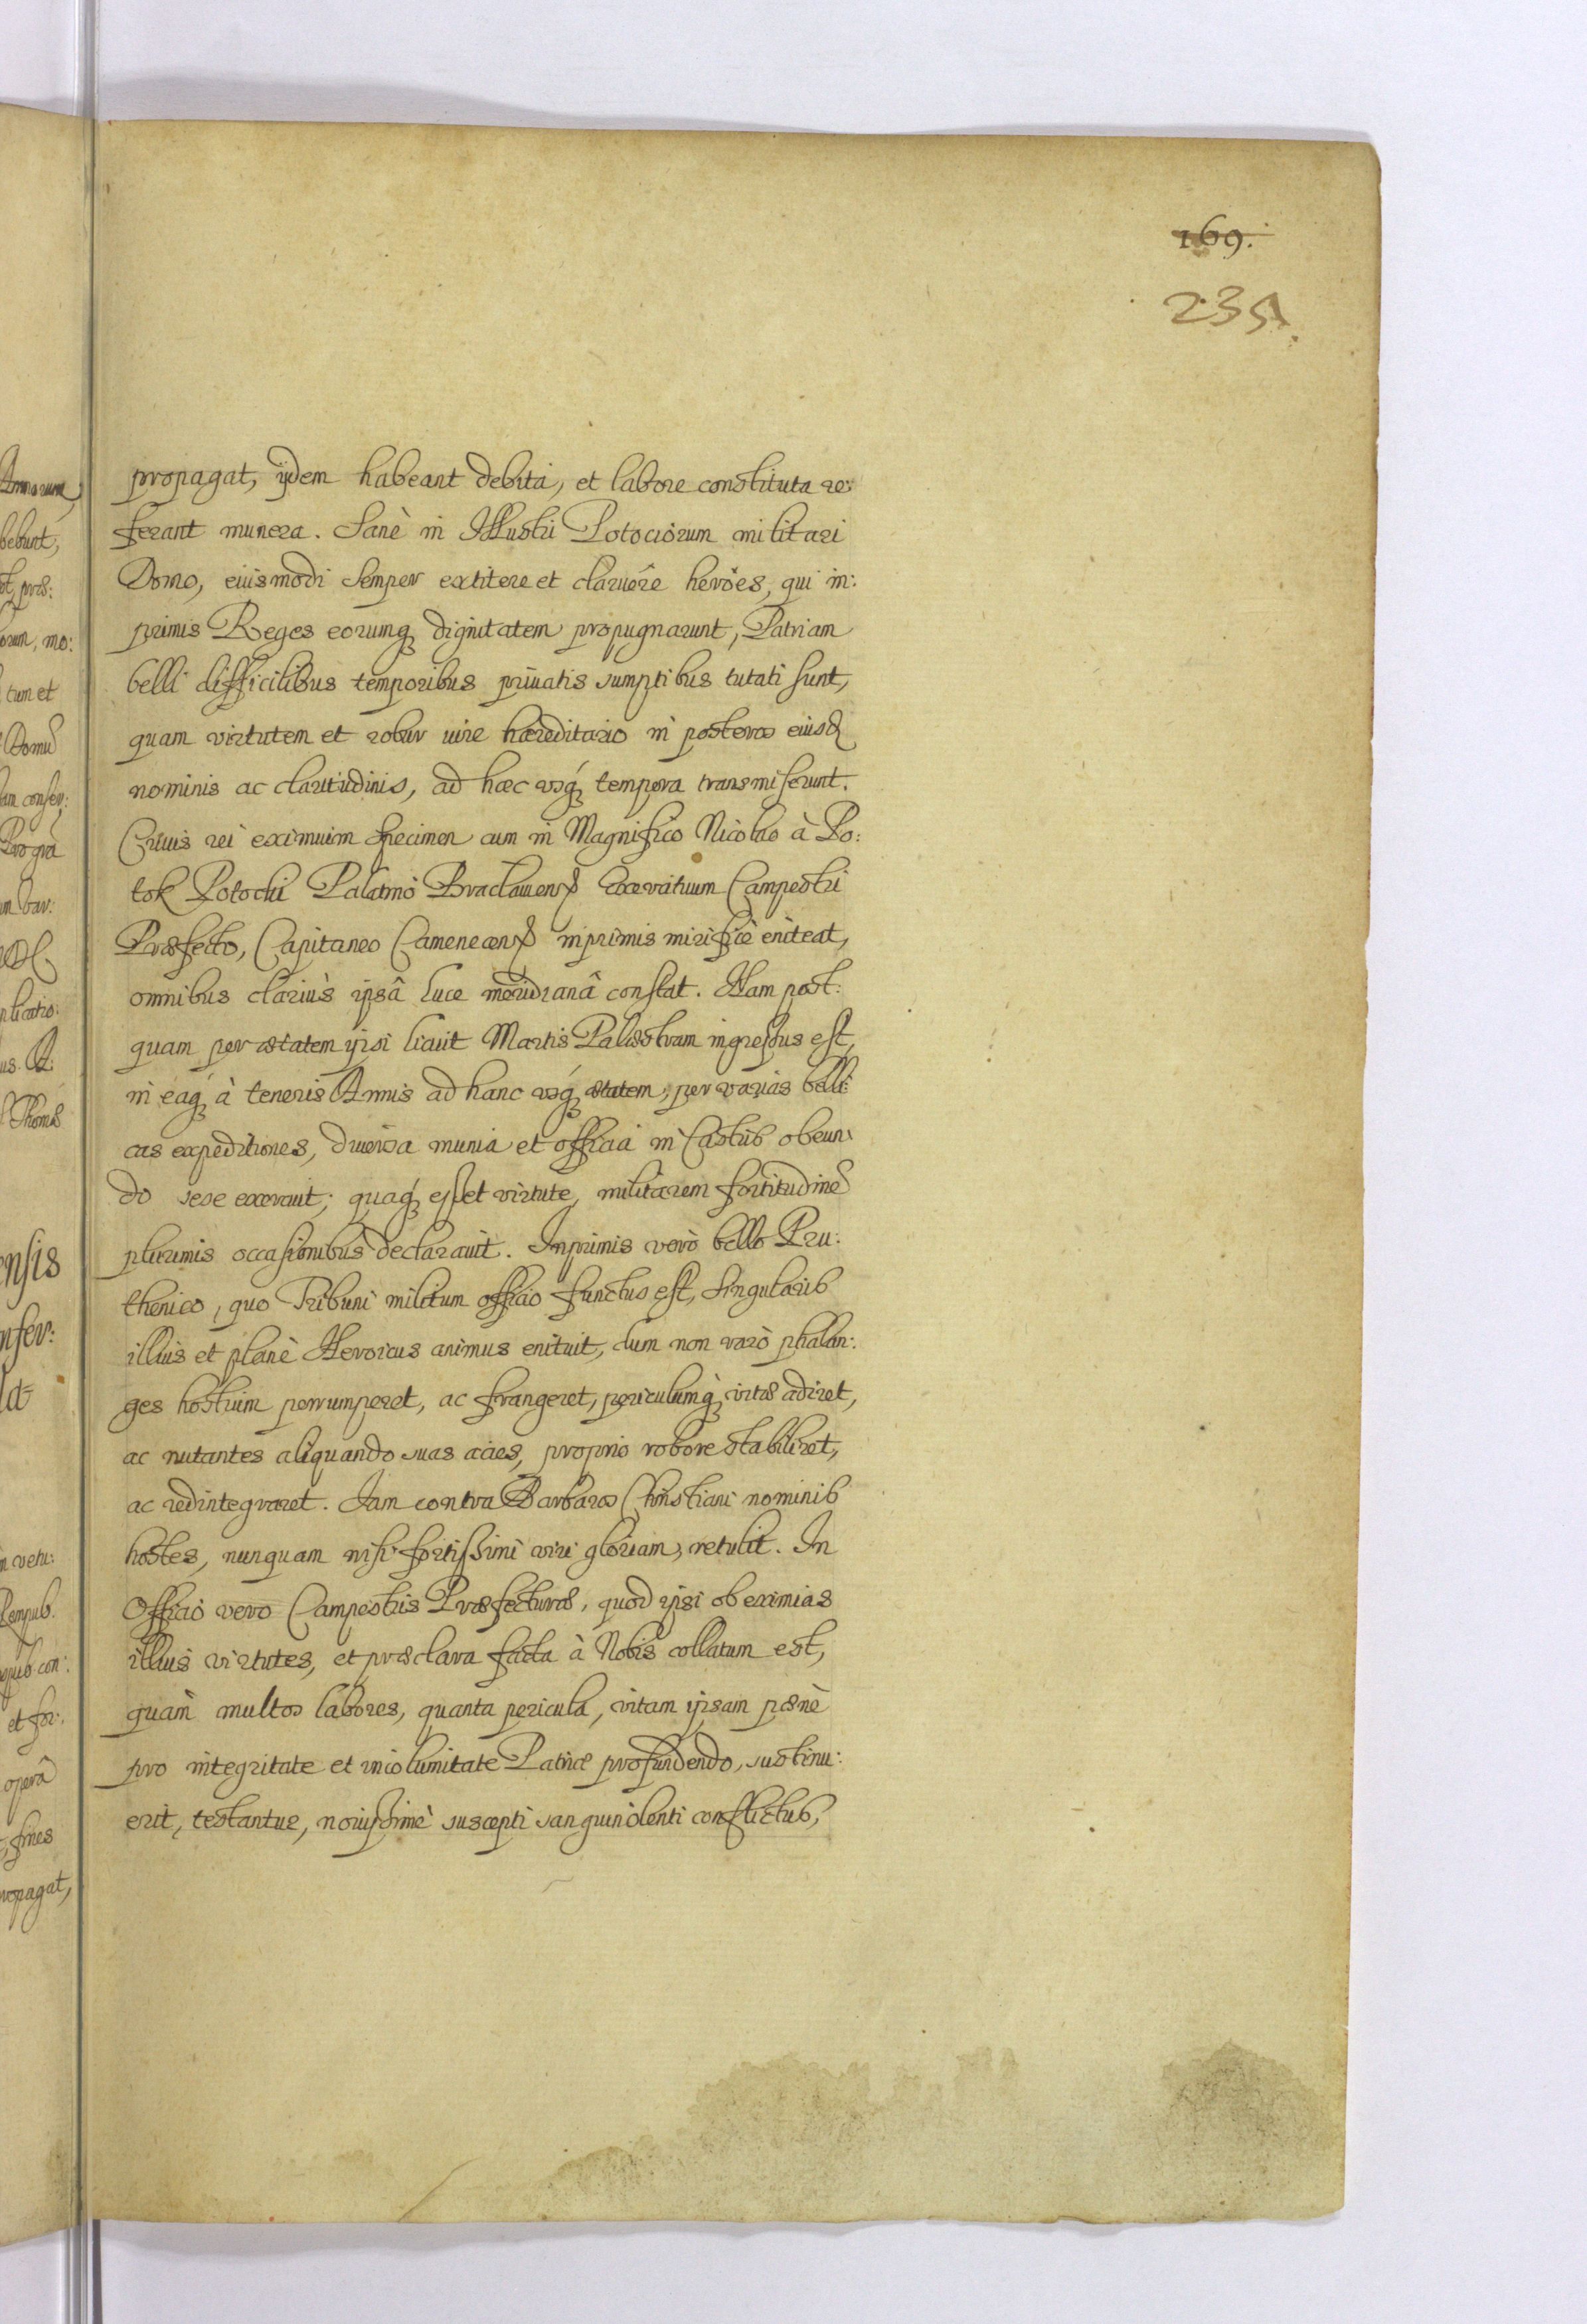 169.
235
propagat, ijdem habeant debita, et labore constituta re:
ferant munera. Sanè in Illustri Potociorum militari
Domo, eiusmodi semper extitere et claruêre heröes, qui in:
primis Reges eorumq₃ dignitatem propugnarunt, Patriam
belli difficilibus temporibus priuatis sumptibus tutati sunt,
quam virtutem et robur iure hæreditario in posteros eiusd
nominis ac claritudinis, ad hæc vsq́₃ tempora transmiserunt.
Cuius rei eximium specimen cum in Magnifico Nicolao à Po:
tok Potocki Palatino Braclauiens Exercituum Campestri
Præfecto, Capitaneo Camenecens inprimis mirificè eniteat,
omnibus clariùs ipsâ luce meridianâ constat. Nam post:
quam per ætatem ipsi licuit Martis Palæstram ingressus est,
in eaq́₃ à teneris Annis ad hanc vsq́₃ ætatem, per varias belli:
cas expeditiones, diuersa munia et officia in Castris obeun:
do sese exercuit; quaq́₃ esset virtute, militarem fortitudinē
plurimis occasionibus declarauit. Inprimis verò bello Pru:
thenico, quo Tribuni militum officio functus est, singularis
illius et planè Heroicus animus enituit, dum non rarò phalan:
ges hostium perrumperet, ac frangeret, periculumq́₃ vitæ adiret,
ac nutantes aliquando suas acies, proprio robore stabiliret,
ac redintegraret. Iam contra Barbaros Christiani nominis
hostes, nunquam nisi fortissimi viri gloriam, retulit. In
Officio vero Campestris Præfecturæ, quod ipsi ob eximias
illius virtutes, et præclara facta à Nobis collatum est,
quàm multos labores, quanta pericula, vitam ipsam pænè
pro integritate et incolumitate Patriæ profundendo, sustinu:
erit, testantur, nouissimè suscepti sanguinolenti conflictus,